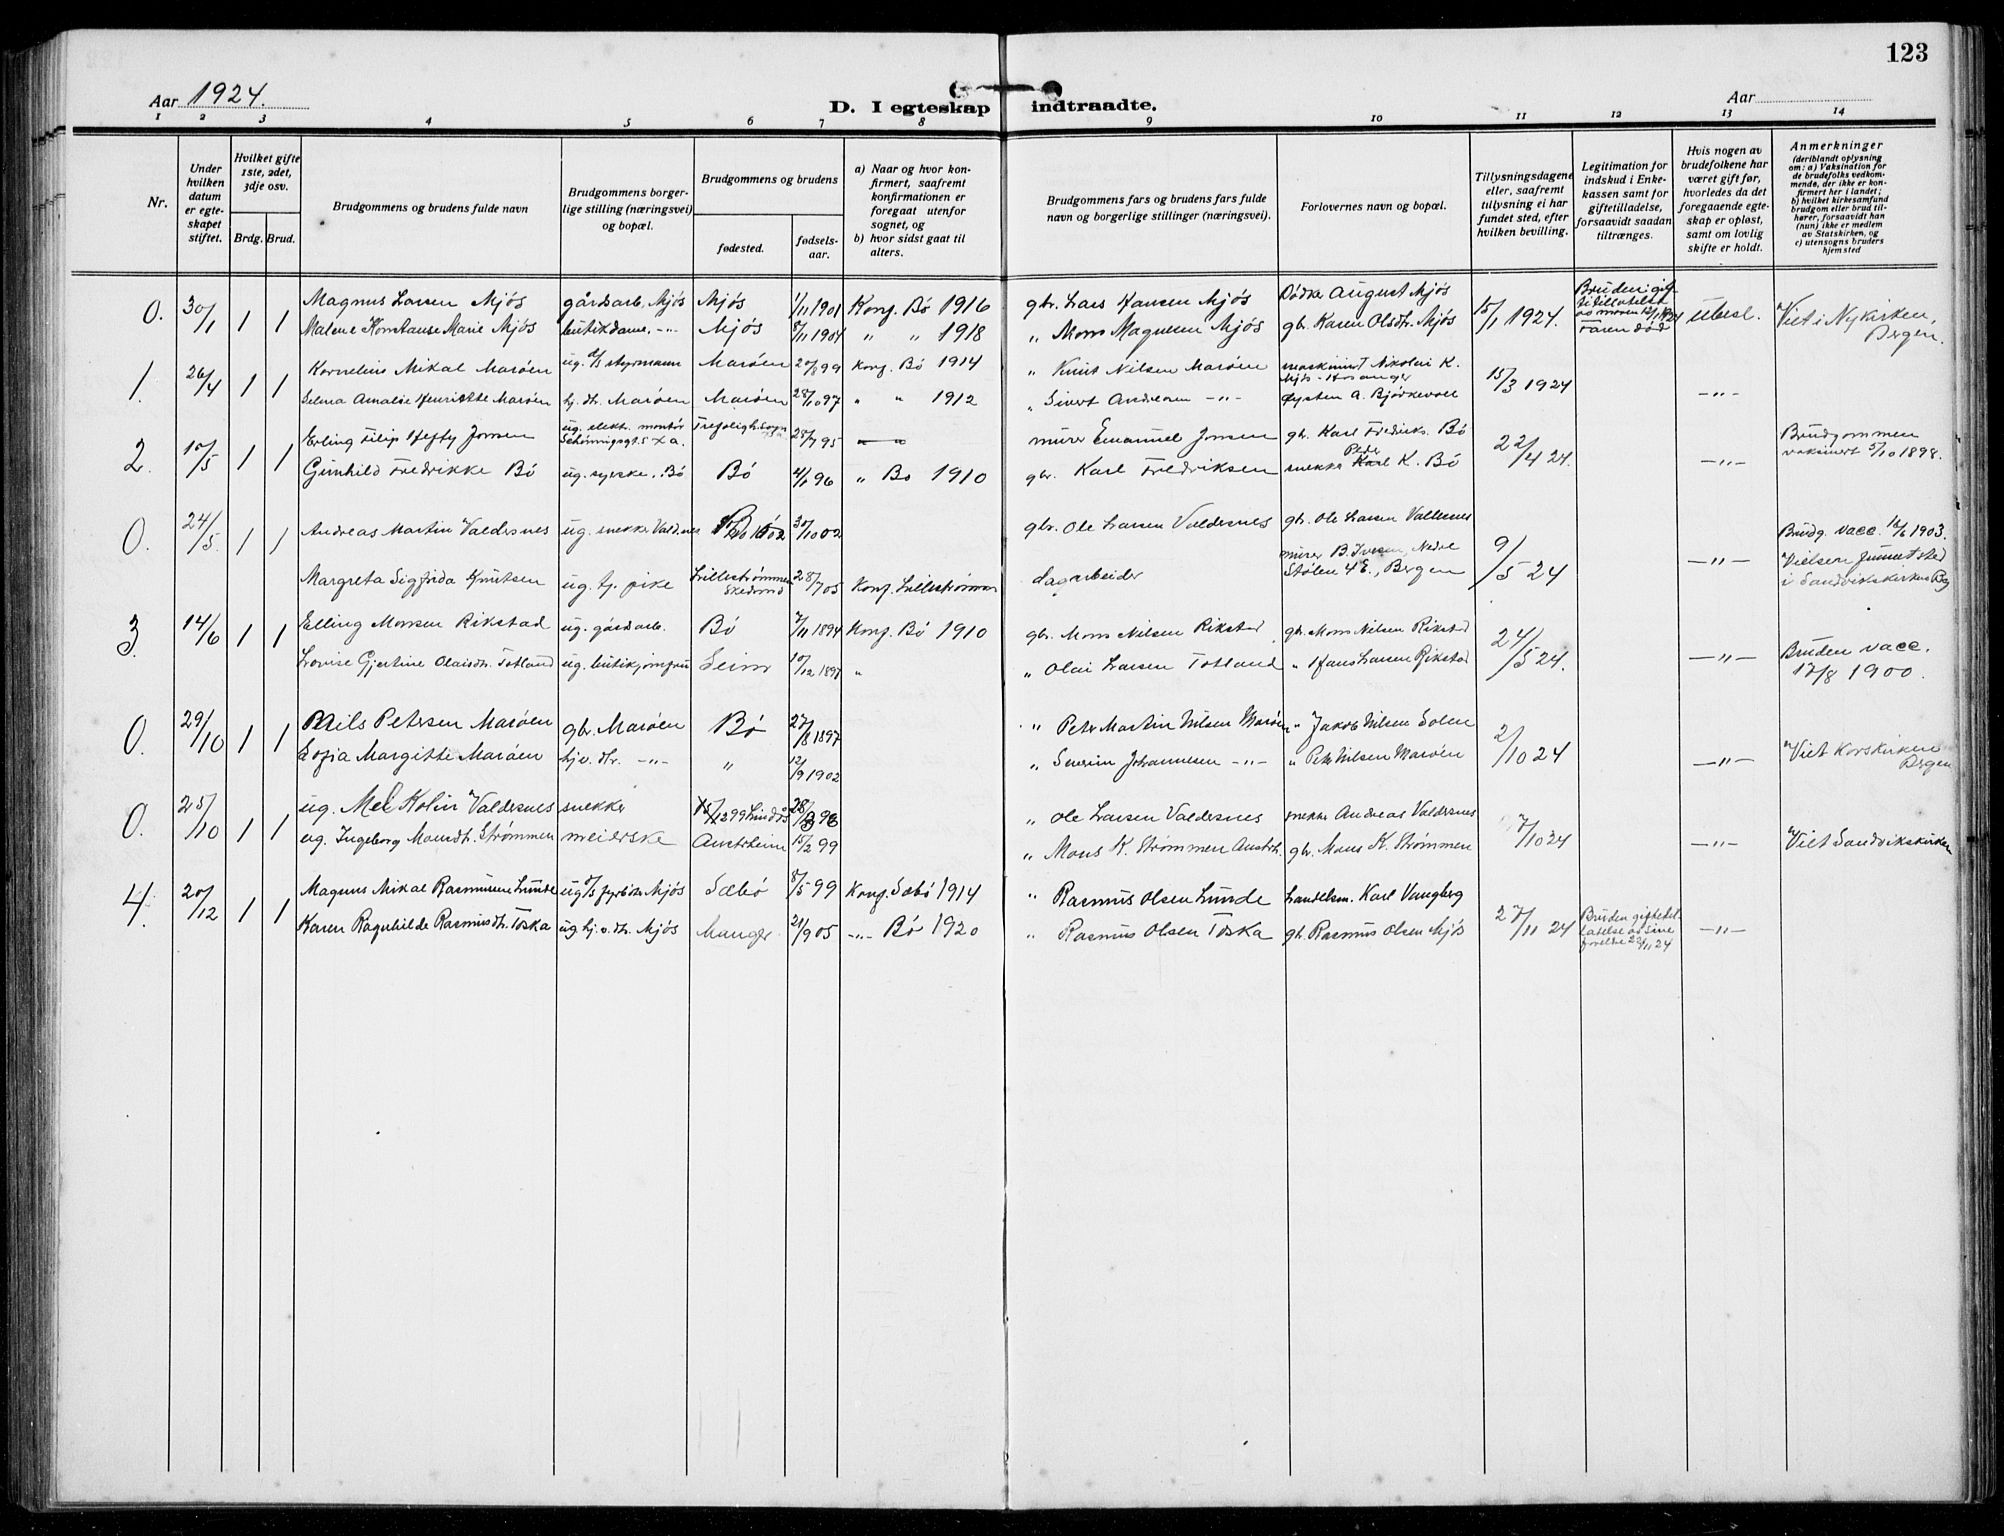 123
Aar 1924.
D. I egteskap indtraadte.
Aar
1 2 3 4 5 6 7 8 9 10 11 12 13 14
Nr.
Under hvilken datum er egteskapet stiftet.
Hvilket gifte 1ste, 2det, 3dje osv.
Brdg. Brud.
Brudgommens og brudens fulde navn
Brudgommens borgerlige stilling (næringsvei) og bopæl.
Brudgommens og brudens
fødested.
fødselsaar.
a) Naar og hvor konfirmert, saafremt konfirmationen er foregaat utenfor sognet, og
b) hvor sidst gaat til alters.
Brudgommens fars og brudens fars fulde navn og borgerlige stillinger (næringsvei).
Forlovernes navn og bopæl.
Tillysningsdagene eller, saafremt tillysning ei har fundet sted, efter hvilken bevilling.
Legitimation for indskud i Enkekassen samt for giftetilladelse, forsaavidt saadan tiltrænges.
Hvis nogen av brudefolkene har været gift før, hvorledes da det foregaaende egteskap er opløst, samt om lovlig skifte er holdt.
Anmerkninger
(deriblandt oplysning om: a) Vaksination for de brudefolks vedkommende, der ikke er konfirmert her i landet; b) hvilket kirkesamfund brudgom eller brud tilhører, forsaavidt han (hun) ikke er medlem av Statskirken, og c) utensogns bruders hjemsted
0. 30/1 1 1 Magnus Larsen Mjøs gårdsarb. Mjøs Mjøs 1/11 1901 Konf. Bø 1916 gbr. Lars Hansen Mjøs August Mjøs 15/1 1924. ubesl. Viet i Nykirken, Bergen.
Malene Konstanse Marie Mjøs butikdame. -"- Mjøs 8/11 1904 " " 1918 " Mons Magnesen Mjøs gbr. Karen Olsdtr. Mjøs Faren død
1. 26/4 1 1 Kornelius Mikal Marøen ug. d/s styrmann Marøen 27/8 99 Konf. Bø 1914 " Knut Nilsen Marøen maskinist Nikolai K. Mjøs - Hosanger 15/3 1924 -"-
Selma Amalie Henriette Marøen hj. dtr. Marøen Marøen 28/10 97 " " 1912 " Sivert Andersen -"- Øysten A. Bjødkevoll
2. 10/5 1 1 Erling Filip Hefty Jonsen ug. elektr. montør Schønningsgt. 5 Kra. Trefoligh. sogn 28/7 95 -"- murer Emanuel Jonsen gb. Karl Fredriks. Bø 22/4 24. -"- Brudgommen vaksinert 5/10 1898.
Gunhild Fredrikke Bø ug. syerske, Bø Bø 4/1 96 " Bø 1910 gbr. Karl Fredriksen snekker Peder K. Bø
0. 24/5. 1 1 Andreas Martin Valdersnes ug. snekker Valdersnes Bø 30/10 02 gbr. Ole Larsen Valdersnes gbr. Ole Larsen Valdersnes 9/5 24 -"- Brudg. vacc. 16/6 1903.
Margreta Sigfrida Knutsen ug. tj. pike Lillestrømmen Skedsmo 28/7 05 Konf. Lillestrømmen dagarbeider murer B. Iversen, Nedre Stølen 4 E., Bergen Vielsen funnet sted i Sandvikskirken Bg
3. 14/6 1 1 Elling Monsen Rikstad ug. gårdsarb. Bø 7/11 1894 Konf. Bø 1910 gbr. Mons Nilsen Rikstad gb. Mons Nilsen Rikstad 24/5 24. -"- Bruden vacc. 17/8 1900.
Lovise Gjertine Olaisdtr. Totland ug. butikjomfru Seim 10/12 1897 " " Olai Larsen Totland " Hans Larsen Rikstad
0. 29/10 1 1 Nils Petersen Marøen gbr. Marøen Bø 27/8 1897 " Peter Martin Nilsen Marøen " Jakob Nilsen Solem 2/10 24 -"- Viet Korskirken Bergen
Sofia Margitte Marøen hjv. dtr. -"- " 12/9 1902 " Severin Johannesen -"- " Peter Nilsen Marøen
0. 25/10 1 1 ug. Mel Kolin Valdersnes snekker 15/12 99 Lindås 28/3 98 " Ole Larsen Valdersnes snekker Andreas Valdersnes 7/10 24 -"- Viet Sandvikskirken
ug. Ingeborg Monsdtr. Strømmen meierske Austrheim 15/2 99 " Mons K. Strømmen Austrh. gbr. Mons K. Strømmen
4. 20/12 1 1 Magnus Mikal Rasmussen Lunde ug. d/s fyrbøter Mjøs Sæbø 8/5 99 Konf. Sæbø 1914 " Rasmus Olsen Lunde Landelsm. Karl Vangberg 27/11 24 Bruden giftetillatelse av sine foreldre 22/11 24 -"-
Karen Ragnhilde Rasmusdtr. Toska ug. hj. v. dtr. Mjøs Manger 21/9 05 -"- Bø 1920 " Rasmus Olsen Toska gb. Rasmus Olsen Mjøs